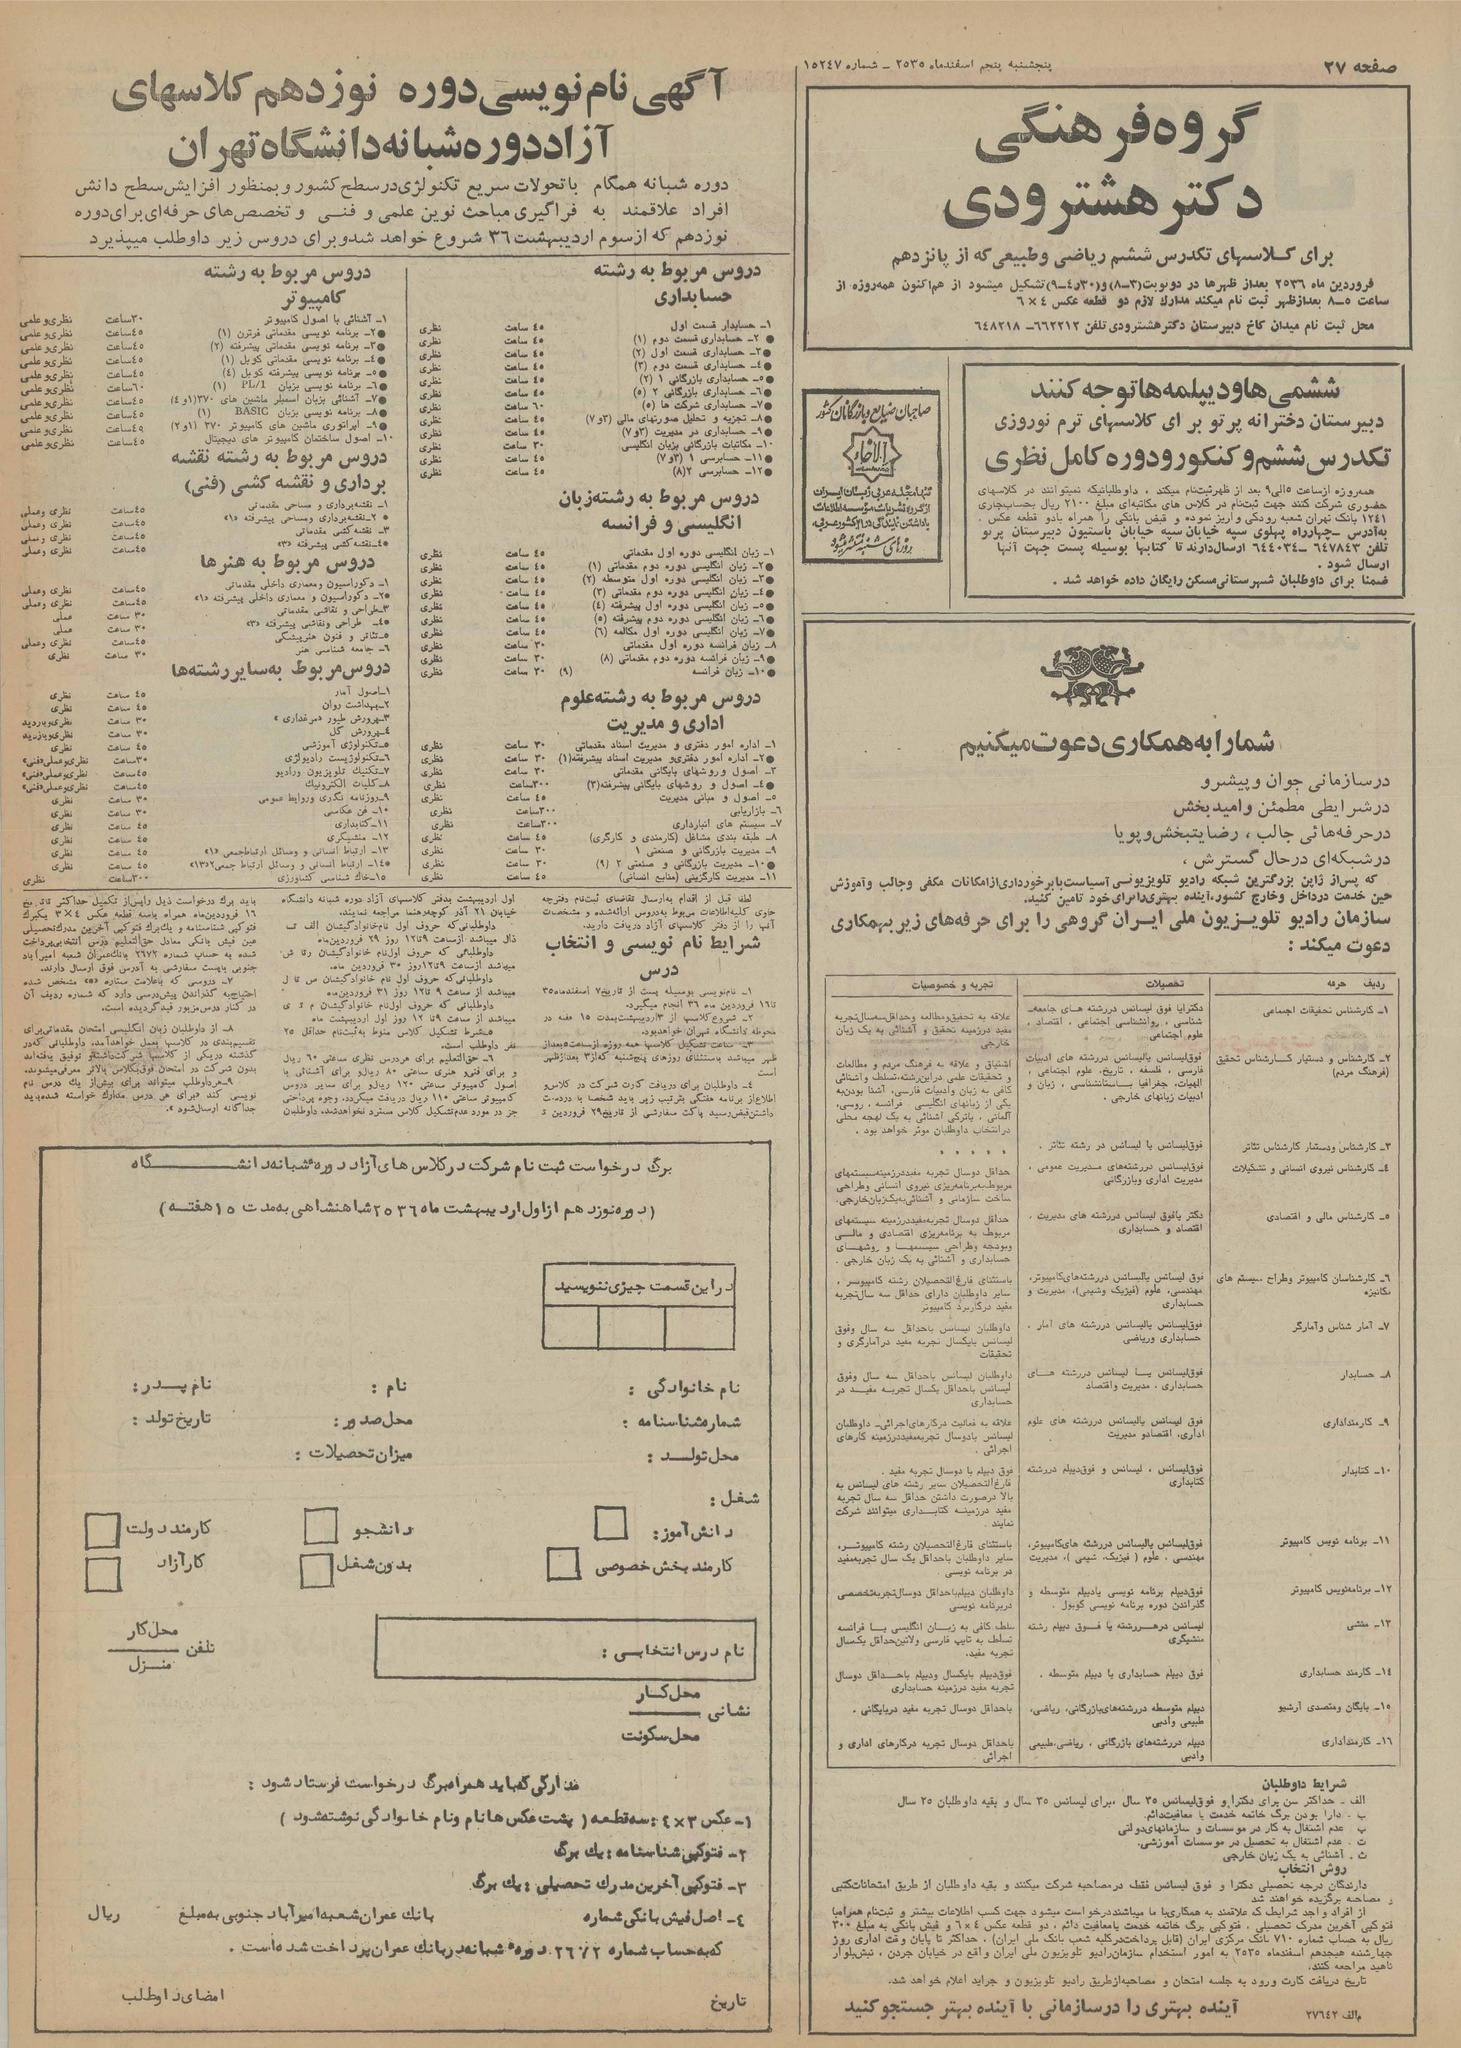 صفحه ۲۷
پنجشنبه پنجم اسفندماه ۲۵۳۵ – شماره ۱۵۲۴۷
گروه فرهنگی
دکتر هشترودی
برای کلاسهای تکدرس ششم ریاضی وطبیعی که از پانزدهم
فروردین ماه ۲۵۳۶ بعداز ظهرها در دونوبت(۳–۸)و(۴٫۳۰–۹)تشکیل میشود از هم‌اکنون همه‌روزه از
ساعت ۵–۸ بعدازظهر ثبت نام میکند مدارک لازم دو قطعه عکس ۴ × ۶
محل ثبت نام میدان کاخ دبیرستان دکترهشترودی تلفن ۶۶۲۲۱۲– ۶۴۸۲۱۸
ششمی‌هاودیپلمه‌هاتوجه‌کنند
دبیرستان دخترانه پرتو برای کلاسهای ترم نوروزی
تکدرس‌ششم‌وکنکورودوره‌کامل‌نظری
همه‌روزه ازساعت ۵الی۹ بعد از ظهرثبت‌نام میکند ، داوطلبانیکه نمیتوانند در کلاسهای
حضوری شرکت کنند جهت ثبت‌نام در کلاس های مکاتبه‌ای مبلغ ۲۱۰۰ ریال بحساب‌جاری
۱۲۴۱ بانک تهران شعبه رودکی واریز نموده و قبض بانکی را همراه بادو قطعه عکس .
به‌آدرس –چهارراه پهلوی سپه خیابان سپه خیابان باستیون دبیرستان پرتو
تلفن ۶۴۷۸۴۳– ۶۴۴۰۳۴ ارسال‌دارند تا کتابها بوسیله پست جهت آنها
ارسال شود .
ضمنا برای داوطلبان شهرستانی‌مسکن رایگان داده خواهد شد .
صاحبان صنایع و بازرگانان کشور
الاخاء
تنها مجله عربی زبان ایران
از گروه نشریات مؤسسه اطلاعات
روزهای شنبه منتشر میشود
شمارابه‌همکاری‌دعوت‌میکنیم
درسازمانی جوان و پیشرو
درشرایطی مطمئن وامیدبخش
درحرفه‌هائی جالب ، رضایتبخش‌وپویا
درشبکه‌ای درحال گسترش ،
که پس‌از ژاپن بزرگترین شبکه رادیو تلویزیونی آسیاست‌بابرخورداری‌ازامکانات مکفی وجالب وآموزش
حین خدمت درداخل وخارج کشور،آینده بهتری‌رابرای خود تامین کنید.
سازمان رادیو تلویزیون ملی ایران گروهی را برای حرفه‌های زیر بهمکاری
دعوت میکند :
ردیف حرفه تحصیلات تجربه و خصوصیات
۱– کارشناس تحقیقات اجتماعی
دکترایا فوق لیسانس دررشته های جامعه‌
شناسی ، روانشناسی اجتماعی ، اقتصاد ،
علوم اجتماعی
علاقه به تحقیق‌ومطالعه وحداقل‌سه‌سال‌تجربه
مفید درزمینه تحقیق و آشنائی به یک زبان
خارجی
۲– کارشناس و دستیار کارشناس تحقیق
(فرهنگ مردم)
فوق‌لیسانس یالیسانس دررشته های ادبیات
فارسی ، فلسفه ، تاریخ، علوم اجتماعی ،
الهیات، جغرافیا باستانشناسی ، زبان و
ادبیات زبانهای خارجی .
اشتیاق و علاقه به فرهنگ مردم و مطالعات
و تحقیقات علمی دراین‌رشته،تسلط وآشنائی
کافی به زبان وادبیات فارسی، آشنا بودن‌به
یکی از زبانهای انگلیسی ، فرانسه ، روسی،
آلمانی ، یاترکی آشنائی به یک لهجه محلی
درانتخاب داوطلبان موثر خواهد بود .
۳– کارشناس ودستیار کارشناس تئاتر
فوق‌لیسانس یا لیسانس در رشته تئاتر .
۴– کارشناس نیروی انسانی و تشکیلات
فوق‌لیسانس دررشته‌های مدیریت عمومی ،
مدیریت اداری وبازرگانی
حداقل دوسال تجربه مفیددرزمینه‌سیستمهای
مربوط‌به‌برنامه‌ریزی نیروی انسانی وطراحی
ساخت سازمانی و آشنائی‌به‌یک‌زبان‌خارجی.
۵– کارشناس مالی و اقتصادی
دکتر یافوق لیسانس دررشته های مدیریت .
اقتصاد و حسابداری
حداقل دوسال تجربه مفیددرزمینه سیستمهای
مربوط به برنامه‌ریزی اقتصادی و مالی
وبودجه وطراحی سیستمها و روشهای
حسابداری و آشنائی به یک زبان خارجی .
۶– کارشناسان کامپیوتر وطراح سیستم های
مکانیزه
فوق لیسانس یالیسانس دررشته‌های‌کامپیوتر،
مهندسی، علوم (فیزیک وشیمی)، مدیریت و
حسابداری
باستثنای فارغ‌التحصیلان رشته کامپیوتر ،
سایر داوطلبان دارای حداقل سه سال‌تجربه
مفید درکاربرد کامپیوتر
۷– آمار شناس وآمارگر
فوق‌لیسانس یالیسانس دررشته های آمار ،
حسابداری وریاضی
داوطلبان لیسانس باحداقل سه سال وفوق
لیسانس بایکسال تجربه مفید درآمارگری و
تحقیقات
۸– حسابدار
فوق‌لیسانس یا لیسانس در رشته های
حسابداری ، مدیریت واقتصاد
داوطلبان لیسانس باحداقل سه سال وفوق
لیسانس باحداقل یکسال تجربه مفید در
حسابداری
۹– کارمنداداری
فوق لیسانس یالیسانس دررشته های علوم
اداری، اقتصادو مدیریت
علاقه به فعالیت درکارهای‌اجرائی– داوطلبان
لیسانس بادوسال تجربه‌مفیددرزمینه کارهای
اجرائی .
۱۰– کتابدار
فوق‌لیسانس ، لیسانس و فوق‌دیپلم دررشته
کتابداری
فوق دیپلم با دوسال تجربه مفید .
فارغ‌التحصیلان سایر رشته های لیسانس به
بالا درصورت داشتن حداقل سه سال تجربه
مفید درزمینه کتابداری میتوانند شرکت
نمایند
۱۱– برنامه نویس کامپیوتر
فوق‌لیسانس یالیسانس دررشته های‌کامپیوتر،
مهندسی ، علوم ( فیزیک، شیمی )، مدیریت
باستثنای فارغ‌التحصیلان رشته کامپیوتر،
سایر داوطلبان باحداقل یک سال تجربه‌مفید
در برنامه نویسی
۱۲– برنامه‌نویس کامپیوتر
فوق‌دیپلم برنامه نویسی یادیپلم متوسطه و
گذراندن دوره برنامه نویسی کوبول .
داوطلبان دیپلم‌باحداقل دوسال‌تجربه‌تخصصی
دربرنامه نویسی
۱۳– منشی
لیسانس درهررشته یا فوق دیپلم رشته
منشیگری
تسلط کافی به زبان انگلیسی یا فرانسه
تسلط به تایپ فارسی ولاتین‌حداقل یکسال
تجربه مفید.
۱۴– کارمند حسابداری
فوق دیپلم حسابداری یا دیپلم متوسطه .
فوق‌دیپلم بایکسال ودیپلم باحداقل دوسال
تجربه مفید درزمینه حسابداری
۱۵– بایگان ومتصدی آرشیو
دیپلم متوسطه دررشته‌های‌بازرگانی، ریاضی،
طبیعی وادبی
باحداقل دوسال تجربه مفید دربایگانی .
۱۶– کارمنداداری
دیپلم دررشته‌های بازرگانی ، ریاضی،طبیعی
وادبی
باحداقل دوسال تجربه درکارهای اداری و
اجرائی .
شرایط داوطلبان
الف – حداکثر سن برای دکترا و فوق‌لیسانس ۳۵ سال ،برای لیسانس ۳۰ سال و بقیه داوطلبان ۲۵ سال
ب – دارا بودن برگ خاتمه خدمت یا معافیت‌دائم.
پ . عدم اشتغال به کار در موسسات و سازمانهای‌دولتی
ت . عدم اشتغال به تحصیل در موسسات آموزشی.
ث . آشنائی به یک زبان خارجی
روش انتخاب
دارندگان درجه تحصیلی دکترا و فوق لیسانس فقط درمصاحبه شرکت میکنند و بقیه داوطلبان از طریق امتحانات‌کتبی
و مصاحبه برگزیده خواهند شد
از افراد و اجد شرایط که علاقمند به همکاری‌با ما میباشنددرخواست میشود جهت کسب اطلاعات بیشتر و ثبت‌نام همراه‌با
فتوکپی آخرین مدرک تحصیلی ، فتوکپی برگ خاتمه خدمت یامعافیت دائم ، دو قطعه عکس ۴ × ۶ و فیش بانکی به مبلغ ۳۰۰
ریال به حساب شماره ۷۱۰ بانک مرکزی ایران (قابل پرداخت‌درکلیه شعب بانک ملی ایران) ، حداکثر تا پایان وقت اداری روز
چهارشنبه هیجدهم اسفندماه ۲۵۳۵ به امور استخدام سازمان‌رادیو تلویزیون ملی ایران واقع در خیابان جردن ، نبش‌بلوار
ناهید مراجعه کنند.
تاریخ دریافت کارت ورود به جلسه امتحان و مصاحبه‌ازطریق رادیو تلویزیون و جراید اعلام خواهد شد.
آینده بهتری را درسازمانی با آینده بهتر جستجو‌کنید
م‌الف ۲۷۶۴۲
آگهی نام‌نویسی‌دوره نوزدهم‌کلاسهای
آزاددوره‌شبانه‌دانشگاه‌تهران
دوره شبانه همگام باتحولات سریع تکنولوژی‌درسطح کشور وبمنظور افزایش‌سطح دانش
افراد علاقمند به فراگیری مباحث نوین علمی و فنی و تخصص‌های حرفه‌ای‌برای‌دوره
نوزدهم که ازسوم اردیبهشت ۳۶ شروع خواهد شدوبرای دروس زیر داوطلب میپذیرد
دروس مربوط به رشته
حسابداری
۱– حسابدار قسمت اول ۴۵ ساعت نظری
●۲– حسابداری قسمت دوم (۱) ۴۵ ساعت نظری
●۳– حسابداری قسمت اول (۲) ۴۵ ساعت نظری
●۴– حسابداری قسمت دوم (۳) ۴۵ ساعت نظری
●۵– حسابداری بازرگانی ۱ (۲) ۴۵ ساعت نظری
●۶– حسابداری بازرگانی ۲ (۵) ۴۵ ساعت نظری
●۷– حسابداری شرکت ها (۵) ۶۰ ساعت نظری
●۸– تجزیه و تحلیل صورتهای مالی (۳و۷) ۴۵ ساعت نظری
●۹– حسابداری در مدیریت (۳و۷) ۴۵ ساعت نظری
۱۰– مکاتبات بازرگانی بزبان انگلیسی ۳۰ ساعت نظری
●۱۱– حسابرسی ۱ (۳و۷) ۴۵ ساعت نظری
●۱۲– حسابرسی ۲(۸) ۴۵ ساعت نظری
دروس مربوط به رشته‌زبان
انگلیسی و فرانسه
۱– زبان انگلیسی دوره اول مقدماتی ۴۵ ساعت نظری
●۲– زبان انگلیسی دوره دوم مقدماتی (۱) ۴۵ ساعت نظری
●۳– زبان انگلیسی دوره اول متوسطه (۲) ۴۵ ساعت نظری
●۴– زبان انگلیسی دوره دوم مقدماتی (۳) ۴۵ ساعت نظری
●۵– زبان انگلیسی دوره اول پیشرفته (۴) ۴۵ ساعت نظری
●۶– زبان انگلیسی دوره دوم پیشرفته (۵) ۴۵ ساعت نظری
●۷– زبان انگلیسی دوره اول مکالمه (۶) ۴۵ ساعت نظری
۸– زبان فرانسه دوره اول مقدماتی ۳۰ ساعت نظری
●۹– زبان فرانسه دوره دوم مقدماتی (۸) ۳۰ ساعت نظری
●۱۰– زبان فرانسه (۹) ۳۰ ساعت نظری
دروس مربوط به رشته‌علوم
اداری و مدیریت
۱– اداره امور دفتری و مدیریت اسناد مقدماتی ۳۰ ساعت نظری
●۲– اداره امور دفتری‌و مدیریت اسناد پیشرفته(۱) ۳۰ ساعت نظری
۳– اصول وروشهای بایگانی مقدماتی ۳۰ ساعت نظری
●۴– اصول و روشهای بایگانی پیشرفته(۳) ۳۰۰ساعت نظری
۵– اصول و مبانی مدیریت ۴۵ ساعت نظری
۶– بازاریابی ۳۰۰ساعت نظری
۷– سیستم های انبارداری ۳۰۰ساعت نظری
۸– طبقه بندی مشاغل (کارمندی و کارگری) ۴۵ ساعت نظری
۹– مدیریت بازرگانی و صنعتی ۱ ۳۰ ساعت نظری
●۱۰– مدیریت بازرگانی و صنعتی ۲ (۹) ۳۰ ساعت نظری
۱۱– مدیریت کارگزینی (منابع انسانی) ۴۵ ساعت نظری
دروس مربوط به رشته
کامپیوتر
۱– آشنائی با اصول کامپیوتر ۳۰ساعت نظری‌وعلمی
●۲– برنامه نویسی مقدماتی فرترن (۱) ۴۵ساعت نظری‌وعلمی
●۳– برنامه نویسی مقدماتی پیشرفته (۲) ۴۵ساعت نظری‌وعلمی
●۴– برنامه نویسی مقدماتی کوبل (۱) ۴۵ساعت نظری‌وعلمی
●۵– برنامه نویسی پیشرفته کوبل (۴) ۴۵ساعت نظری‌وعلمی
●۶– برنامه نویسی بزبان PL/1 (۱) ۶۰ساعت نظری‌وعلمی
●۷– آشنائی بزبان اسمبلر ماشین های ۳۷۰(۱و۴) ۴۵ساعت نظری‌وعلمی
●۸– برنامه نویسی بزبان BASIC (۱) ۴۵ساعت نظری‌وعلمی
●۹– اپراتوری ماشین های کامپیوتر ۳۷۰ (۱و۲) ۴۵ساعت نظری‌وعلمی
۱۰– اصول ساختمان کامپیوتر های دیجیتال ۴۵ساعت نظری‌وعلمی
دروس مربوط به رشته نقشه
برداری و نقشه کشی (فنی)
۱– نقشه‌برداری و مساحی مقدماتی ۴۵ساعت نظری وعملی
●۲–نقشه‌برداری ومساحی پیشرفته «۱» ۴۵ساعت نظری وعملی
۳– نقشه کشی مقدماتی ۴۵ساعت نظری وعملی
●۴–نقشه‌کشی پیشرفته «۳» ۴۵ساعت نظری وعملی
دروس مربوط به هنرها
۱– دکوراسیون ومعماری داخلی مقدماتی ۴۵ساعت نظری وعملی
●۲– دکوراسیون و معماری داخلی پیشرفته «۱» ۴۵ساعت نظری وعملی
۳–طراحی و نقاشی مقدماتی ۳۰ ساعت عملی
●۴– طراحی ونقاشی پیشرفته «۳» ۳۰ ساعت عملی
۵–تئاتر و فنون هنرپیشگی ۴۵ساعت نظری وعملی
۶– جامعه شناسی هنر ۳۰ ساعت نظری
دروس‌مربوط به‌سایررشته‌ها
۱–اصول آمار ۴۵ ساعت نظری
۲–بهداشت روان ۴۵ ساعت نظری
۳–پرورش طیور «مرغداری» ۳۰ ساعت نظری‌وبازدید
۴–پرورش گل ۳۰ ساعت نظری‌وبازدید
۵–تکنولوژی آموزشی ۴۵ ساعت نظری
۶–تکنولوژیست رادیولژی ۳۰ساعت نظری‌وعملی«فنی»
۷–تکنیک تلویزیون ورادیو ۴۵ ساعت نظری‌وعملی«فنی»
۸–کلیات الکترونیک ۴۵ ساعت نظری‌وعملی«فنی»
۹–روزنامه نگاری وروابط عمومی ۳۰ ساعت نظری
۱۰–فن عکاسی ۳۰ ساعت نظری
۱۱–کتابداری ۴۵ ساعت نظری
۱۲– منشیگری ۴۵ ساعت نظری
۱۳– ارتباط انسانی و وسائل ارتباط‌جمعی «۱» ۴۵ ساعت نظری
●۱۴– ارتباط انسانی و وسائل ارتباط جمعی۲«۱۳» ۴۵ ساعت نظری
۱۵–خاک شناسی کشاورزی ۳۰۰ساعت نظری
لطفا قبل از اقدام به‌ارسال تقاضای ثبت‌نام دفترچه
حاوی کلیه‌اطلاعات مربوط به‌دروس ارائه‌شده و مشخصات
آنها را از دفتر کلاسهای آزاد دریافت دارید.
شرایط نام نویسی و انتخاب
درس
۱– نام‌نویسی بوسیله پست از تاریخ۷ اسفندماه۳۵
تا۱۶ فروردین ماه ۳۶ انجام میگیرد.
۲– شروع‌کلاسها از ۳اردیبهشت‌بمدت ۱۵ هفته در
محوطه دانشگاه تهران خواهدبود.
۳– ساعت تشکیل کلاسها همه روزه ازساعت ۵بعداز
ظهر میباشد باستثنای روزهای پنج‌شنبه که‌از۳ بعدازظهر
است
۴– داوطلبان برای دریافت کارت شرکت در کلاس‌و
اطلاع‌از برنامه هفتگی بترتیب زیر باید شخصا با دردست
داشتن‌قبض‌رسید پاکت سفارشی از تاریخ۲۹ فروردین تا
اول اردیبهشت بدفتر کلاسهای آزاد دوره شبانه دانشگاه
خیابان ۲۱ آذر کوچه‌دهنما مراجعه نمایند.
داوطلبانی‌که حروف اول نام‌خانوادگیشان الف تا
ذال میباشد ازساعت ۹تا۱۲ روز ۲۹ فروردین‌ماه
داوطلبانی که حروف اول‌نام خانوادگیشان ر‌تا ش
میباشد ازساعت ۹تا۱۲روز ۳۰ فروردین ماه.
داوطلبانی‌که حروف اول نام خانوادگیشان ص تا ل
میباشد از ساعت ۹ تا۱۲ روز ۳۱ فروردین‌ماه
داوطلبانی که حروف اول‌نام خانوادگیشان م تا ی
میباشد از ساعت ۹ تا ۱۲ روز اول اردیبهشت ماه
۵–شرط تشکیل کلاس منوط به‌ثبت‌نام حداقل ۲۵
نفر داوطلب است.
۶– حق‌التعلیم برای هردرس نظری ساعتی ۶۰ ریال
و برای فنی‌و هنری ساعتی ۸۰ ریال‌و برای آشنائی با
اصول کامپیوتر ساعتی ۱۲۰ ریال‌و برای سایر دروس
کامپیوتر ساعتی ۱۱۰ ریال دریافت میگردد. وجوه پرداختی
جز در مورد عدم‌تشکیل کلاس مسترد نخواهدشد. داوطلبان
باید برگ درخواست ذیل را‌پس‌از تکمیل حداکثر تا تاریخ
۱۶ فروردین‌ماه همراه باسه قطعه عکس ۴×۳ یکبرگ
فتوکپی شناسنامه و یک‌برگ فتوکپی آخرین مدرک‌تحصیلی
عین فیش بانکی معادل حق‌التعلیم درس انتخابی‌پرداخت
شده به حساب شماره ۲۶۷۲ بانک‌عمران شعبه امیرآباد
جنوبی باپست سفارشی به آدرس فوق ارسال دارند.
۷– دروسی که باعلامت ستاره «●» مشخص شده
احتیاج‌به گذراندن پیش‌درسی دارد که شماره ردیف آن
در کنار درس‌مزبور قیدگردیده است.
۸– از داوطلبان زبان انگلیسی امتحان مقدماتی‌برای
تقسیم‌بندی در کلاسها بعمل خواهدآمد. داوطلبانی که‌در
گذشته دریکی از کلاسها شرکت‌داشته‌و توفیق یافته‌اند
بدون شرکت در امتحان فوق‌بکلاس بالاتر معرفی‌میشوند.
۹–هرداوطلب میتواند برای بیش‌از یک درس نام
نویسی کند «برای هر درس مدارک خواسته شده‌باید
جداگانه ارسال‌شود».
برگ درخواست ثبت نام شرکت در‌کلاس های‌آزاد دوره‌شبانه‌دانشگاه
(دوره‌نوزدهم ازاول‌اردیبهشت ماه ۲۵۳۶شاهنشاهی به‌مدت ۱۵هفته)
در این قسمت چیزی ننویسید
نام خانوادگی : نام : نام پدر :
شماره‌شناسنامه : محل صدور : تاریخ تولد :
محل تولد : میزان تحصیلات :
شغل :
دانش‌آموز: دانشجو کارمند دولت
کارمند بخش خصوصی بدون شغل کارآزاد
نام درس انتخابی : تلفن محل کار
منزل
نشانی محل کار
محل سکونت
مدارکی که‌باید همراه‌برگ درخواست فرستاده‌شود :
۱– عکس ۳×۴ : سه‌قطعه ( پشت عکس‌ها نام ونام خانوادگی نوشته‌شود )
۲– فتوکپی شناسنامه : یک برگ
۳– فتوکپی آخرین مدرک تحصیلی : یک برگ
۴– اصل فیش بانکی شماره بانک عمران شعبه امیرآباد جنوبی به‌مبلغ ریال
که‌به‌حساب شماره ۲۶۷۲ دوره شبانه‌در بانک عمران پرداخت شده‌است .
تاریخ امضای داوطلب